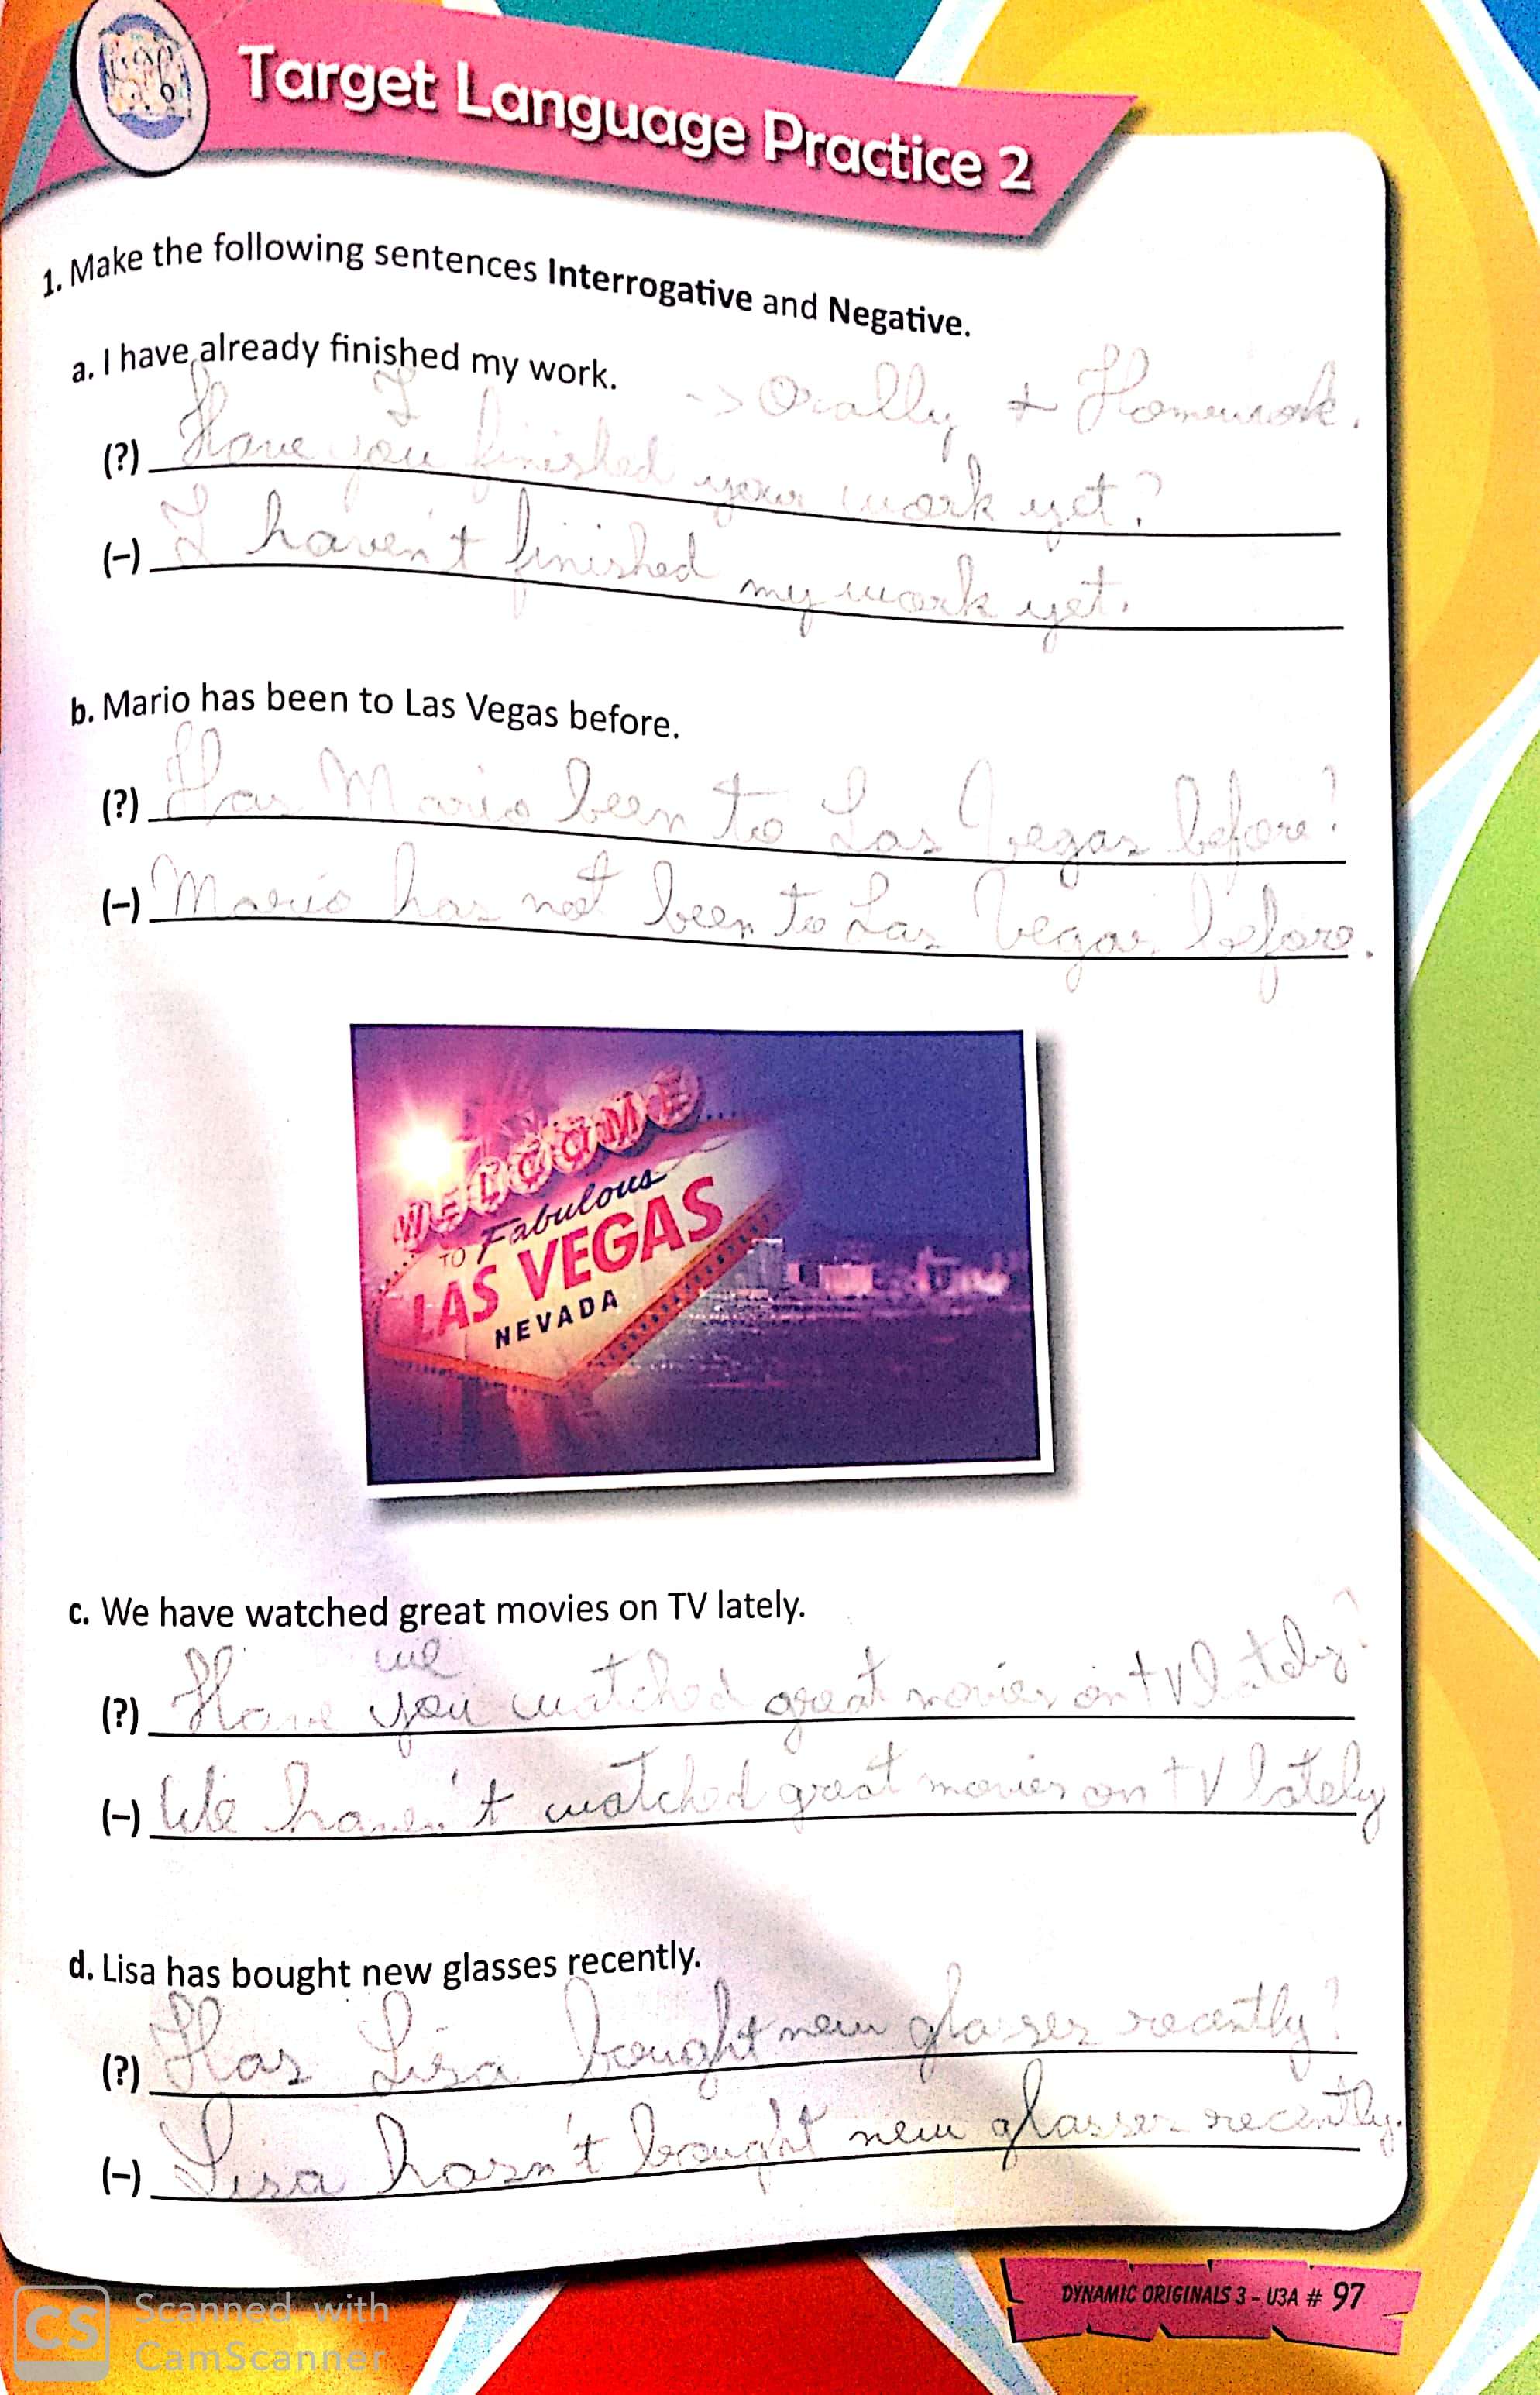 Target Language Practice 2
1. Make the following sentences Interrogative and Negative.
a. I have already finished my work.
-> Orally + Homework.
I
(?) Have you finished your work yet?
(-) I haven't finished my work yet.
b. Mario has been to Las Vegas before.
(?) Has Mario been to Las Vegas before?
(-) Mario has not been to Las Vegas before.
WELCOME
TO Fabulous
LAS VEGAS
NEVADA
c. We have watched great movies on TV lately.
we
(?) Have you watched great movies on tv lately?
(-) We haven't watched great movies on tv lately
d. Lisa has bought new glasses recently.
(?) Has Lisa bought new glasses recently?
(-) Lisa hasn't bought new glasses recently.
DYNAMIC ORIGINALS 3 - U3A # 97
CS Scanned with
CamScanner